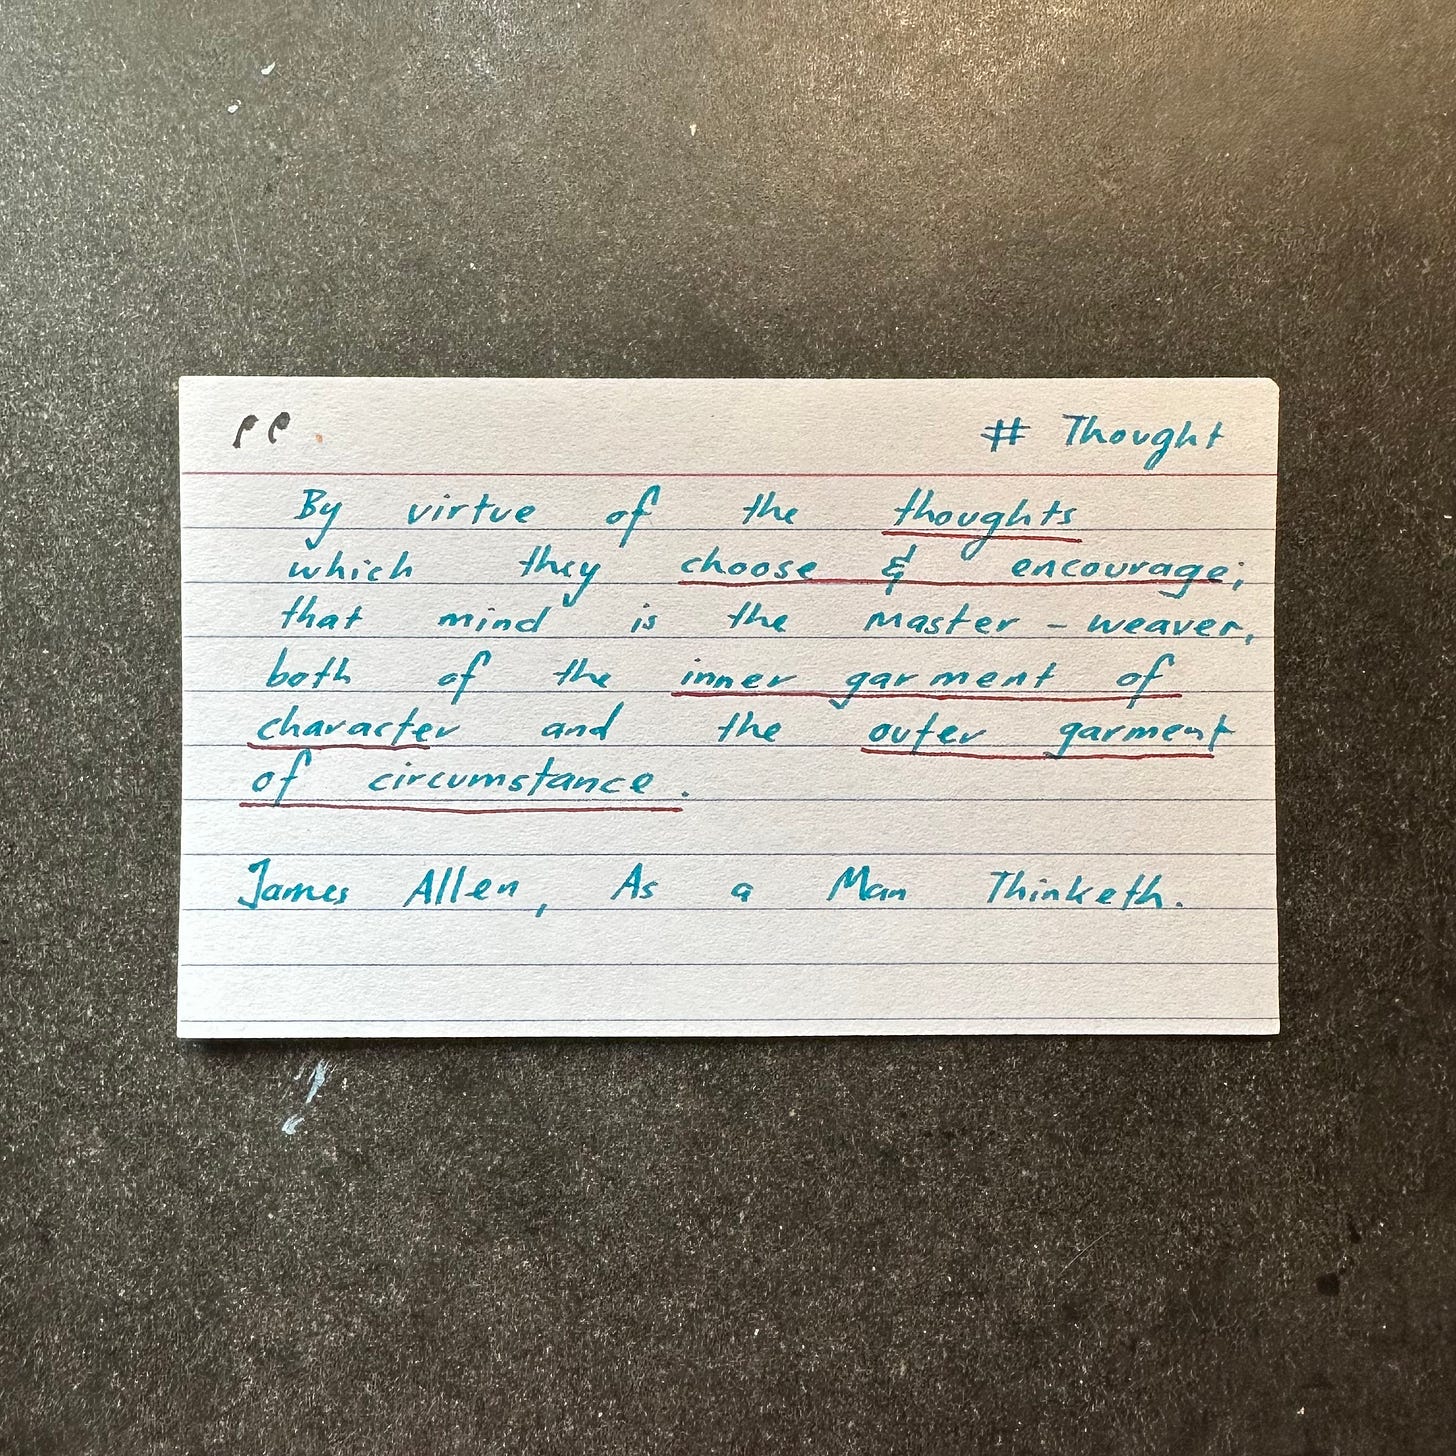 “ # Thought
By virtue of the thoughts
which they choose & encourage;
that mind is the master-weaver,
both of the inner garment of
character and the outer garment
of circumstance.
James Allen, As a Man Thinketh.